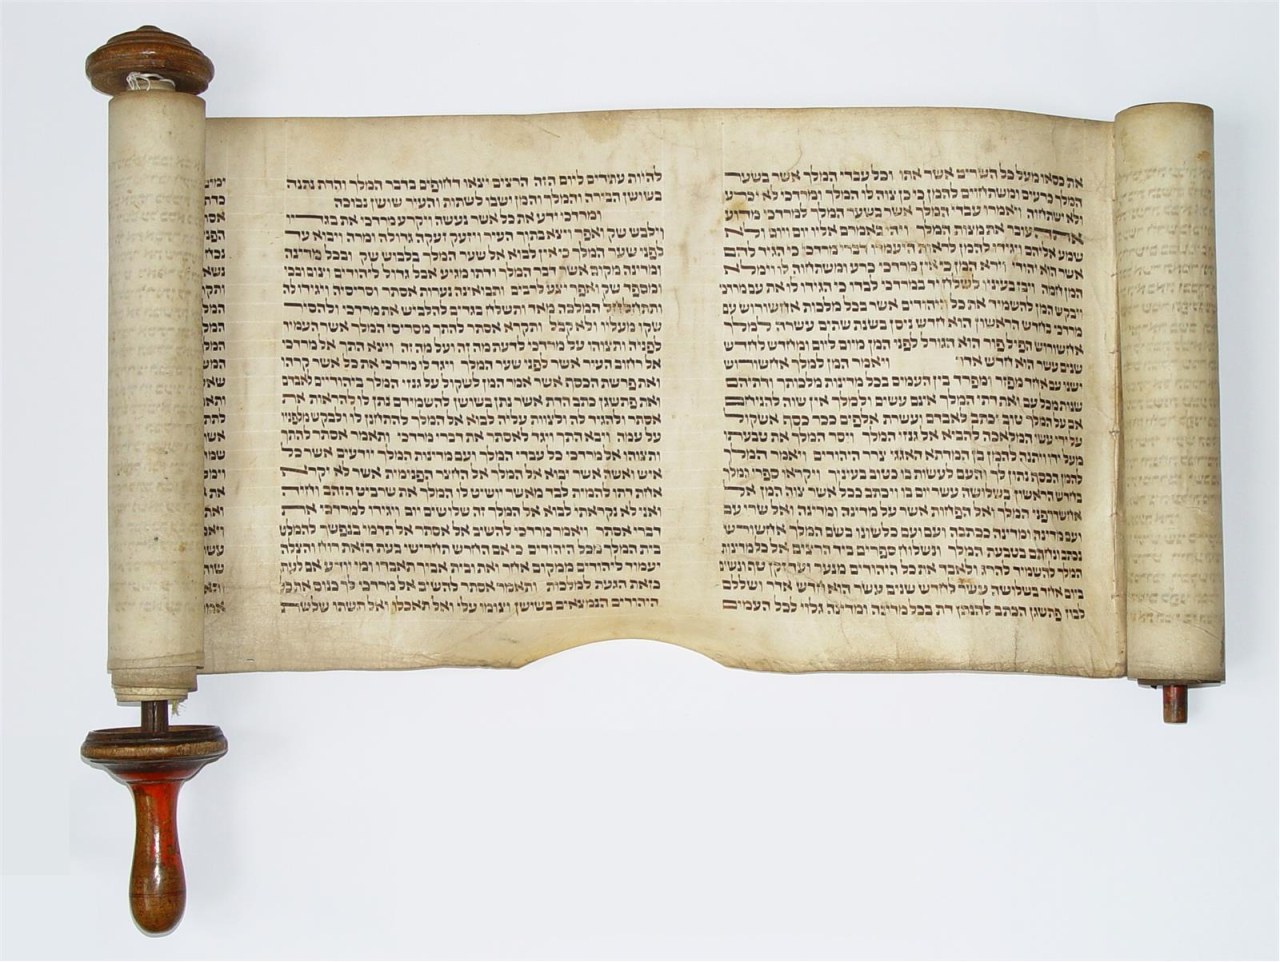 את כסאו מעל כל השרים אשר אתו וכל עבדי המלך אשר בשער
המלך כרעים ומשתחוים להמן כי כן צוה לו המלך ומרדכי לא יכרע
ולא ישתחוה ויאמרו עבדי המלך אשר בשער המלך למרדכי מדוע
אתה עובר את מצות המלך ויהי כאמרם אליו יום ויום ולא
שמע אליהם ויגידו להמן לראות היעמדו דברי מרדכי כי הגיד להם
אשר הוא יהודי וירא המן כי אין מרדכי כרע ומשתחוה לו וימלא
המן חמה ויבז בעיניו לשלח יד במרדכי לבדו כי הגידו לו את עם מרדכי
ויבקש המן להשמיד את כל היהודים אשר בכל מלכות אחשורוש עם
מרדכי בחדש הראשון הוא חדש ניסן בשנת שתים עשרה למלך
אחשורוש הפיל פור הוא הגורל לפני המן מיום ליום ומחדש לחדש
שנים עשר הוא חדש אדר ויאמר המן למלך אחשורוש
ישנו עם אחד מפזר ומפרד בין העמים בכל מדינות מלכותך ודתיהם
שנות מכל עם ואת דתי המלך אינם עשים ולמלך אין שוה להניחם
אם על המלך טוב יכתב לאבדם ועשרת אלפים ככר כסף אשקול
על ידי עשי המלאכה להביא אל גנזי המלך ויסר המלך את טבעתו
מעל ידו ויתנה להמן בן המדתא האגגי צרר היהודים ויאמר המלך
להמן הכסף נתון לך והעם לעשות בו כטוב בעיניך ויקראו ספרי המלך
בחדש הראשון בשלושה עשר יום בו ויכתב ככל אשר צוה המן אל
אחשדרפני המלך ואל הפחות אשר על מדינה ומדינה ואל שרי עם
ועם מדינה ומדינה ככתבה ועם ועם כלשונו בשם המלך אחשורוש
נכתב ונחתם בטבעת המלך ונשלוח ספרים ביד הרצים אל כל מדינות
המלך להשמיד להרג ולאבד את כל היהודים מנער ועד זקן טף ונשים
ביום אחד בשלושה עשר לחדש שנים עשר הוא חדש אדר ושללם
לבוז פתשגן הכתב להנתן דת בכל מדינה ומדינה גלוי לכל העמים
להיות עתדים ליום הזה הרצים יצאו דחופים בדבר המלך והדת נתנה
בשושן הבירה והמלך והמן ישבו לשתות והעיר שושן נבוכה
ומרדכי ידע את כל אשר נעשה ויקרע מרדכי את בגדיו
וילבש שק ואפר ויצא בתוך העיר ויזעק זעקה גדולה ומרה ויבוא עד
לפני שער המלך כי אין לבוא אל שער המלך בלבוש שק ובכל מדינה
ומדינה מקום אשר דבר המלך ודתו מגיע אבל גדול ליהודים וצום ובכי
ומספד שק ואפר יצע לרבים ותבואינה נערות אסתר וסריסיה ויגידו לה
ותתחלחל המלכה מאד ותשלח בגדים להלביש את מרדכי ולהסיר
שקו מעליו ולא קבל ותקרא אסתר להתך מסריסי המלך אשר העמיד
לפניה ותצוהו על מרדכי לדעת מה זה ועל מה זה ויצא התך אל מרדכי
אל רחוב העיר אשר לפני שער המלך ויגד לו מרדכי את כל אשר קרהו
ואת פרשת הכסף אשר אמר המן לשקול על גנזי המלך ביהודיים לאבדם
ואת פתשגן כתב הדת אשר נתן בשושן להשמידם נתן לו להראות את
אסתר ולהגיד לה ולצוות עליה לבוא אל המלך להתחנן לו ולבקש מלפניו
על עמה ויבוא התך ויגד לאסתר את דברי מרדכי ותאמר אסתר להתך
ותצוהו אל מרדכי כל עבדי המלך ועם מדינות המלך יודעים אשר כל
איש ואשה אשר יבוא אל המלך אל החצר הפנימית אשר לא יקרא
אחת דתו להמית לבד מאשר יושיט לו המלך את שרביט הזהב וחיה
ואני לא נקראתי לבוא אל המלך זה שלושים יום ויגידו למרדכי את
דברי אסתר ויאמר מרדכי להשיב אל אסתר אל תדמי בנפשך להמלט
בית המלך מכל היהודים כי אם החרש תחרישי בעת הזאת רוח והצלה
יעמוד ליהודים ממקום אחר ואת ובית אביך תאבדו ומי יודע אם לעת
כזאת הגעת למלכות ותאמר אסתר להשיב אל מרדכי לך כנוס את כל
היהודים הנמצאים בשושן וצומו עלי ואל תאכלו ואל תשתו שלשת